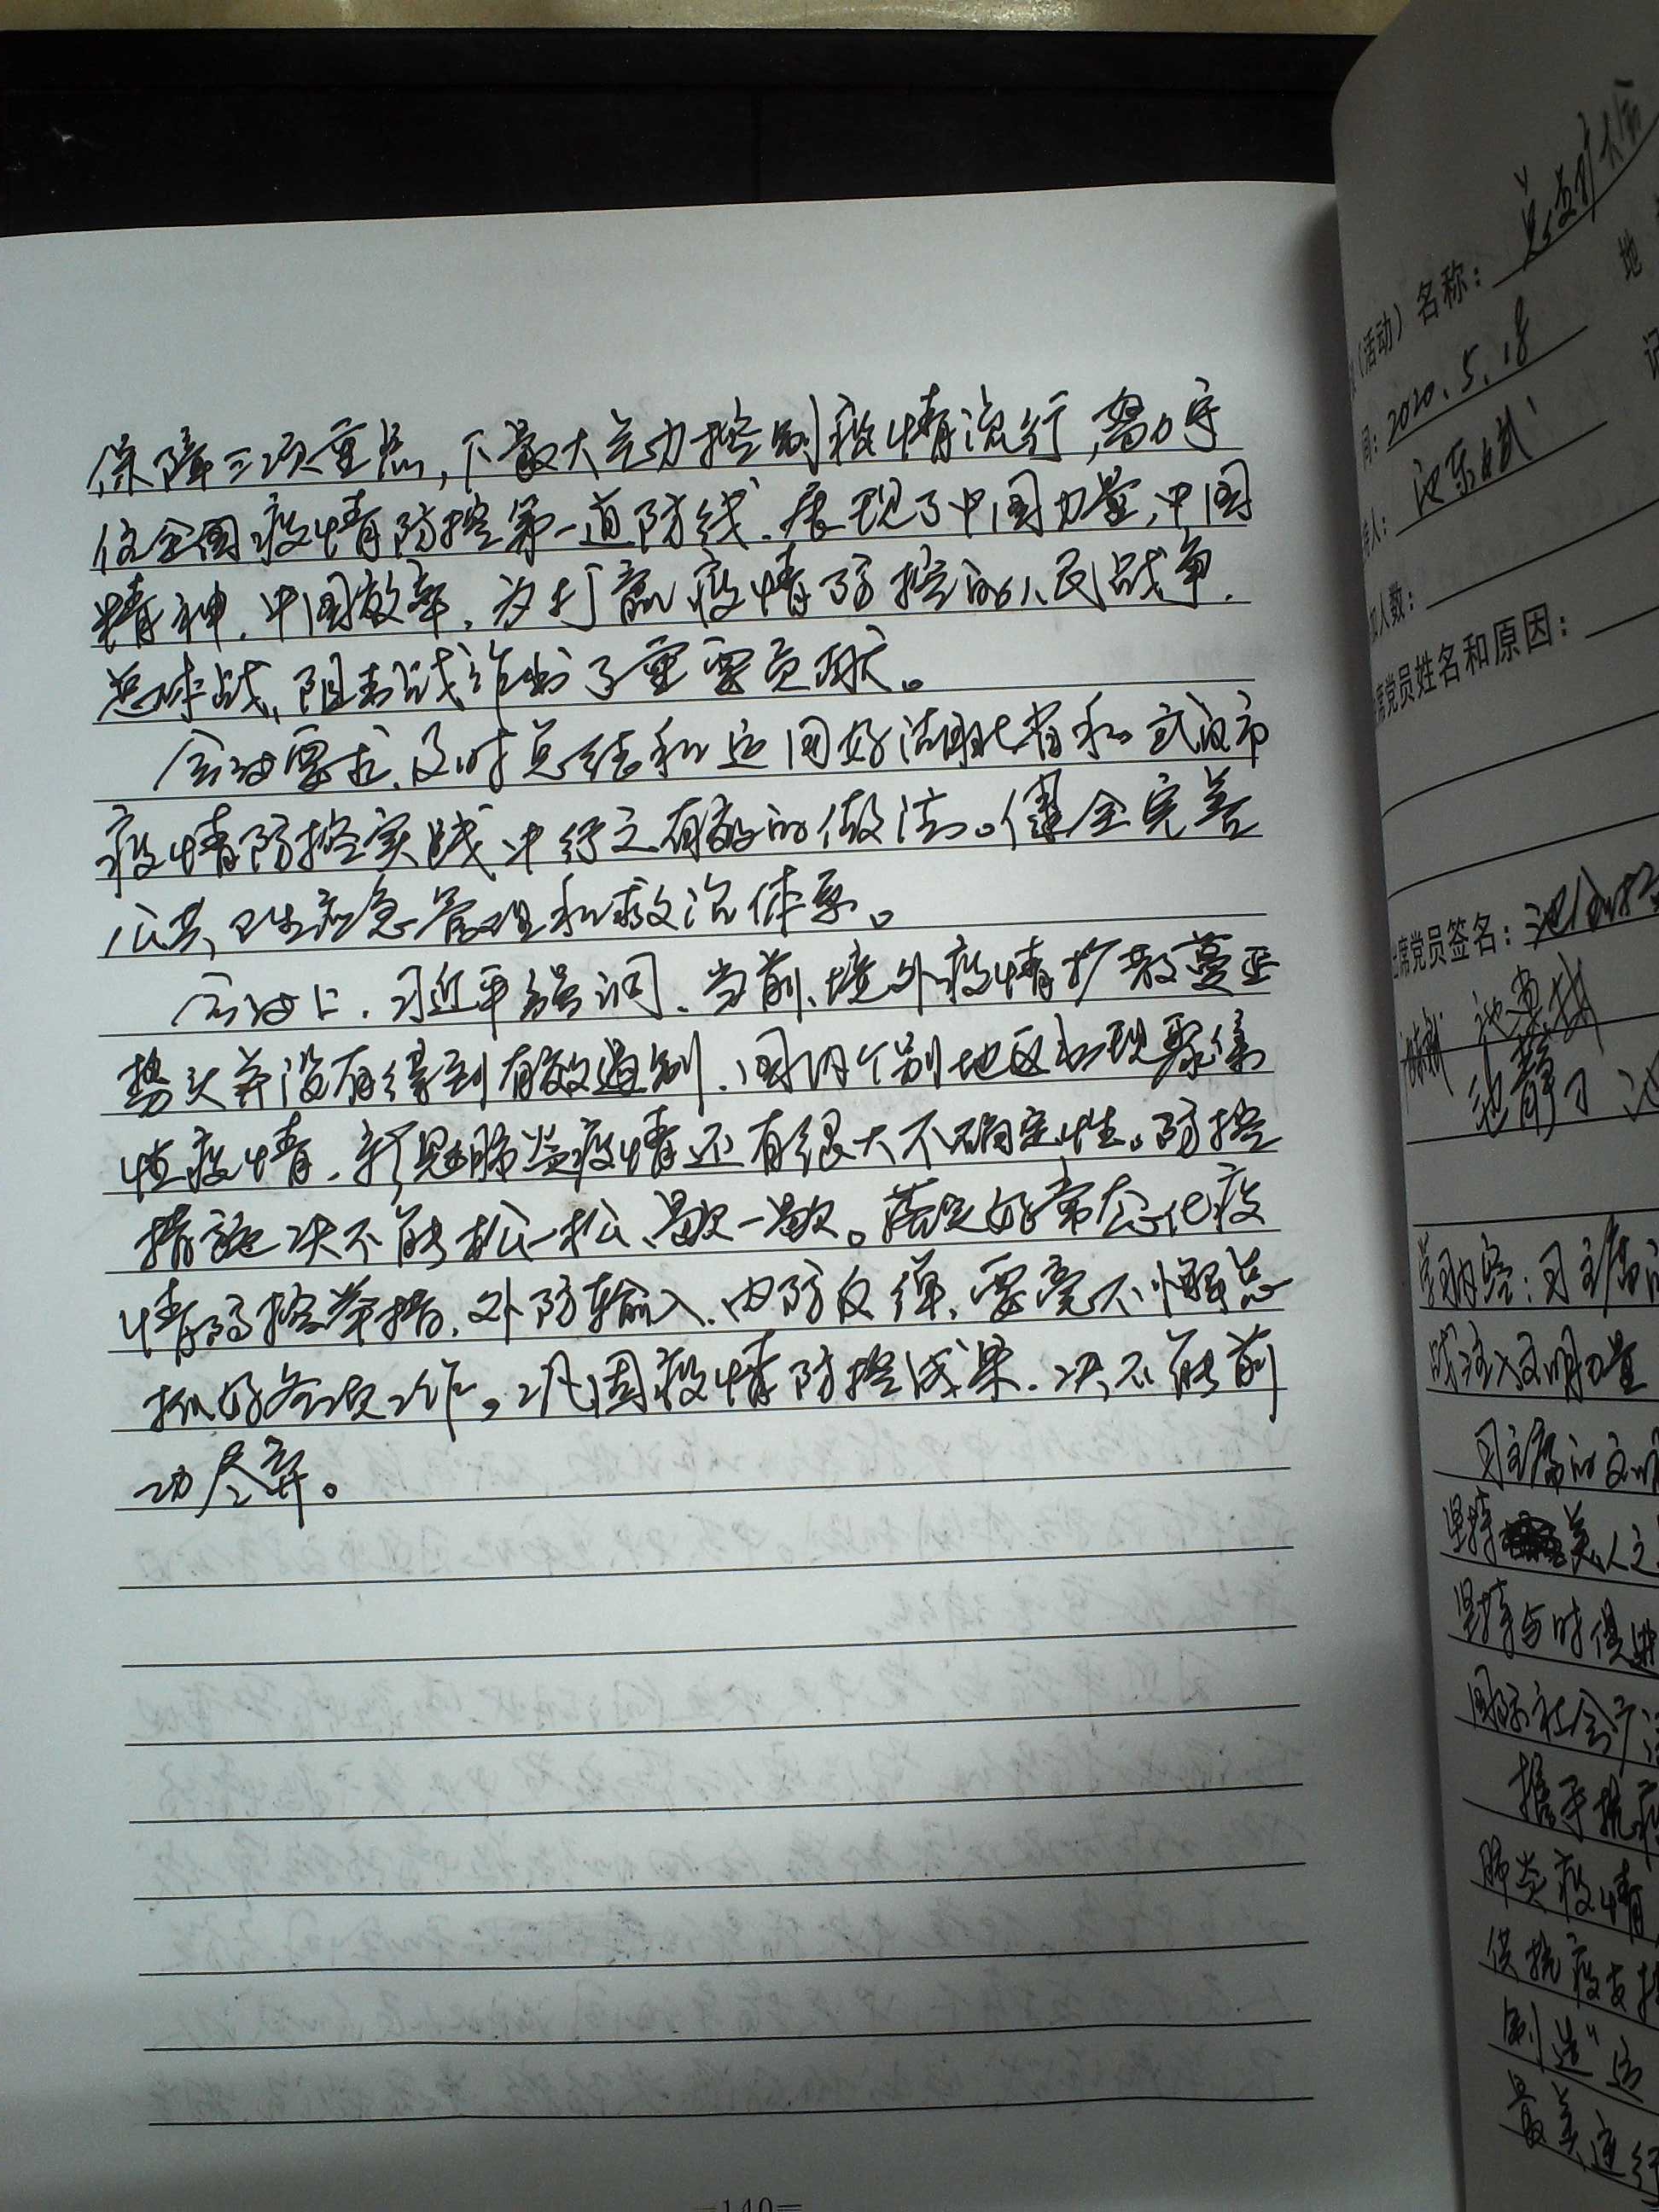 保障三项重点,下最大气力控制疫情流行,努力守
住全国疫情防控第一道防线.展现了中国力量,中国
精神.中国效率,为打赢疫情防控的人民战争.
总体战,阻击战作出了重要贡献。
会议要求,及时总结和运用好湖北省和武汉市
疫情防控实践中行之有效的做法。健全完善
公共卫生应急管理和救治体系。
会议上.习近平强调、当前、境外疫情扩散蔓延
势头并没有得到有效遏制.国内个别地区出现聚集
性疫情.新冠肺炎疫情还有很大不确定性。防控
措施决不能松一松、歇一歇。落实好常态化疫
情防控举措.外防输入.内防反弹、要毫不懈怠
抓好各项工作。巩固疫情防控成果.决不能前
功尽弃。
140
(活动)名称:
地
间:2020.5.18
记
人:
加人数:
席党员姓名和原因:
出席党员签名:
学习内容:习主席
注入文明力量
习主席的文明
坚持 美人之
坚持与时俱进
国际社会广
携手抗疫
肺炎疫情
供抗疫支持
制造"
最美逆行